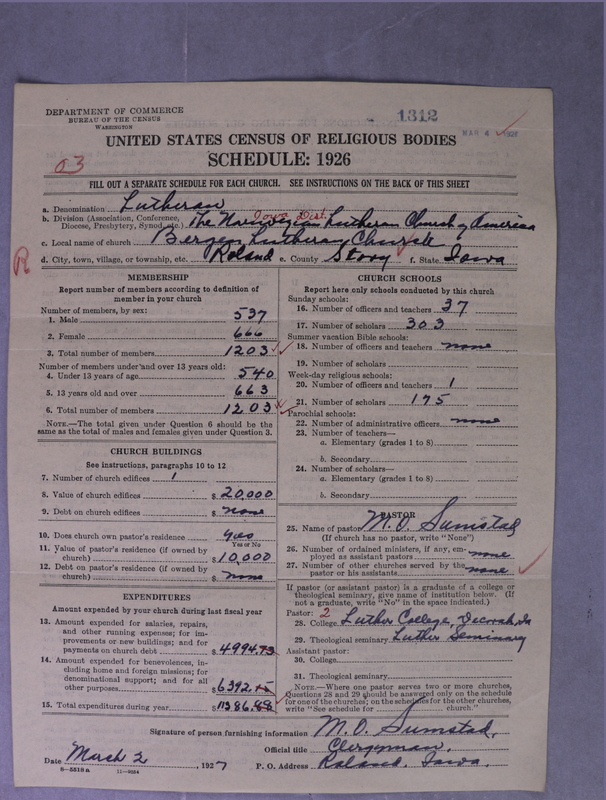 DEPARTMENT OF COMMERCE
BUREAU OF THE CENSUS
WASHINGTON
1312
MAR 4 1927
UNITED STATES CENSUS OF RELIGIOUS BODIES
SCHEDULE: 1926
03
FILL OUT A SEPARATE SCHEDULE FOR EACH CHURCH. SEE INSTRUCTIONS ON THE BACK OF THIS SHEET
a. Denomination Lutheran
Iowa Dist.
b. Division (Association, Conference, Diocese, Presbytery, Synod, etc.) The Norwegian Lutheran Church of America
c. Local name of church Bergen Lutheran Church
R
d. City, town, village, or township, etc. Roland e. County Story f. State Iowa
MEMBERSHIP
Report number of members according to definition of
member in your church
Number of members, by sex:
1. Male 537
2. Female 666
3. Total number of members 1203
Number of members under and over 13 years old:
4. Under 13 years of age 540
5. 13 years old and over 663
6. Total number of members 1203
NOTE.—The total given under Question 6 should be
same as the total of males and females given under Question 3.
CHURCH BUILDINGS
See instructions, paragraphs 10 to 12
7. Number of church edifices 1
8. Value of church edifices $ 20,000
9. Debt on church edifices $ none
10. Does church own pastor's residence yes
Yes or No
11. Value of pastor's residence (if owned by
church) $ 10,000
12. Debt on pastor's residence (if owned by
church) $ none
EXPENDITURES
Amount expended by your church during last fiscal year
13. Amount expended for salaries, repairs,
and other running expenses; for im-
provements or new buildings; and for
payments on church debt $ 4994.73
14. Amount expended for benevolences, in-
cluding home and foreign missions; for
denominational support; and for all
other purposes $ 6392.15
15. Total expenditures during year $ 11386.88
CHURCH SCHOOLS
Report here only schools conducted by this church
Sunday schools:
16. Number of officers and teachers 37
17. Number of scholars 303
Summer vacation Bible schools:
18. Number of officers and teachers none
19. Number of scholars
Week-day religious schools:
20. Number of officers and teachers 1
21. Number of scholars 175
Parochial schools:
22. Number of administrative officers none
23. Number of teachers—
a. Elementary (grades 1 to 8)
b. Secondary
24. Number of scholars—
a. Elementary (grades 1 to 8)
b. Secondary
PASTOR
25. Name of pastor M. O. Sumstad
(If church has no pastor, write "None")
26. Number of ordained ministers, if any, em-
ployed as assistant pastors none
27. Number of other churches served by the
pastor or his assistants none
If pastor (or assistant pastor) is a graduate of a college or
theological seminary, give name of institution below. (If
not a graduate, write "No" in the space indicated.)
Pastor: 2
28. College Luther College, Decorah, Ia
29. Theological seminary Luther Seminary
Assistant pastor:
30. College
31. Theological seminary
NOTE.—Where one pastor serves two or more churches,
Questions 28 and 29 should be answered only on the schedule
for one of the churches; on the schedules for the other churches,
write "See schedule for church."
Signature of person furnishing information M. O. Sumstad,
Official title Clergyman,
Date March 2, 1927 P. O. Address Roland, Iowa,
8—5518 a 11—9264